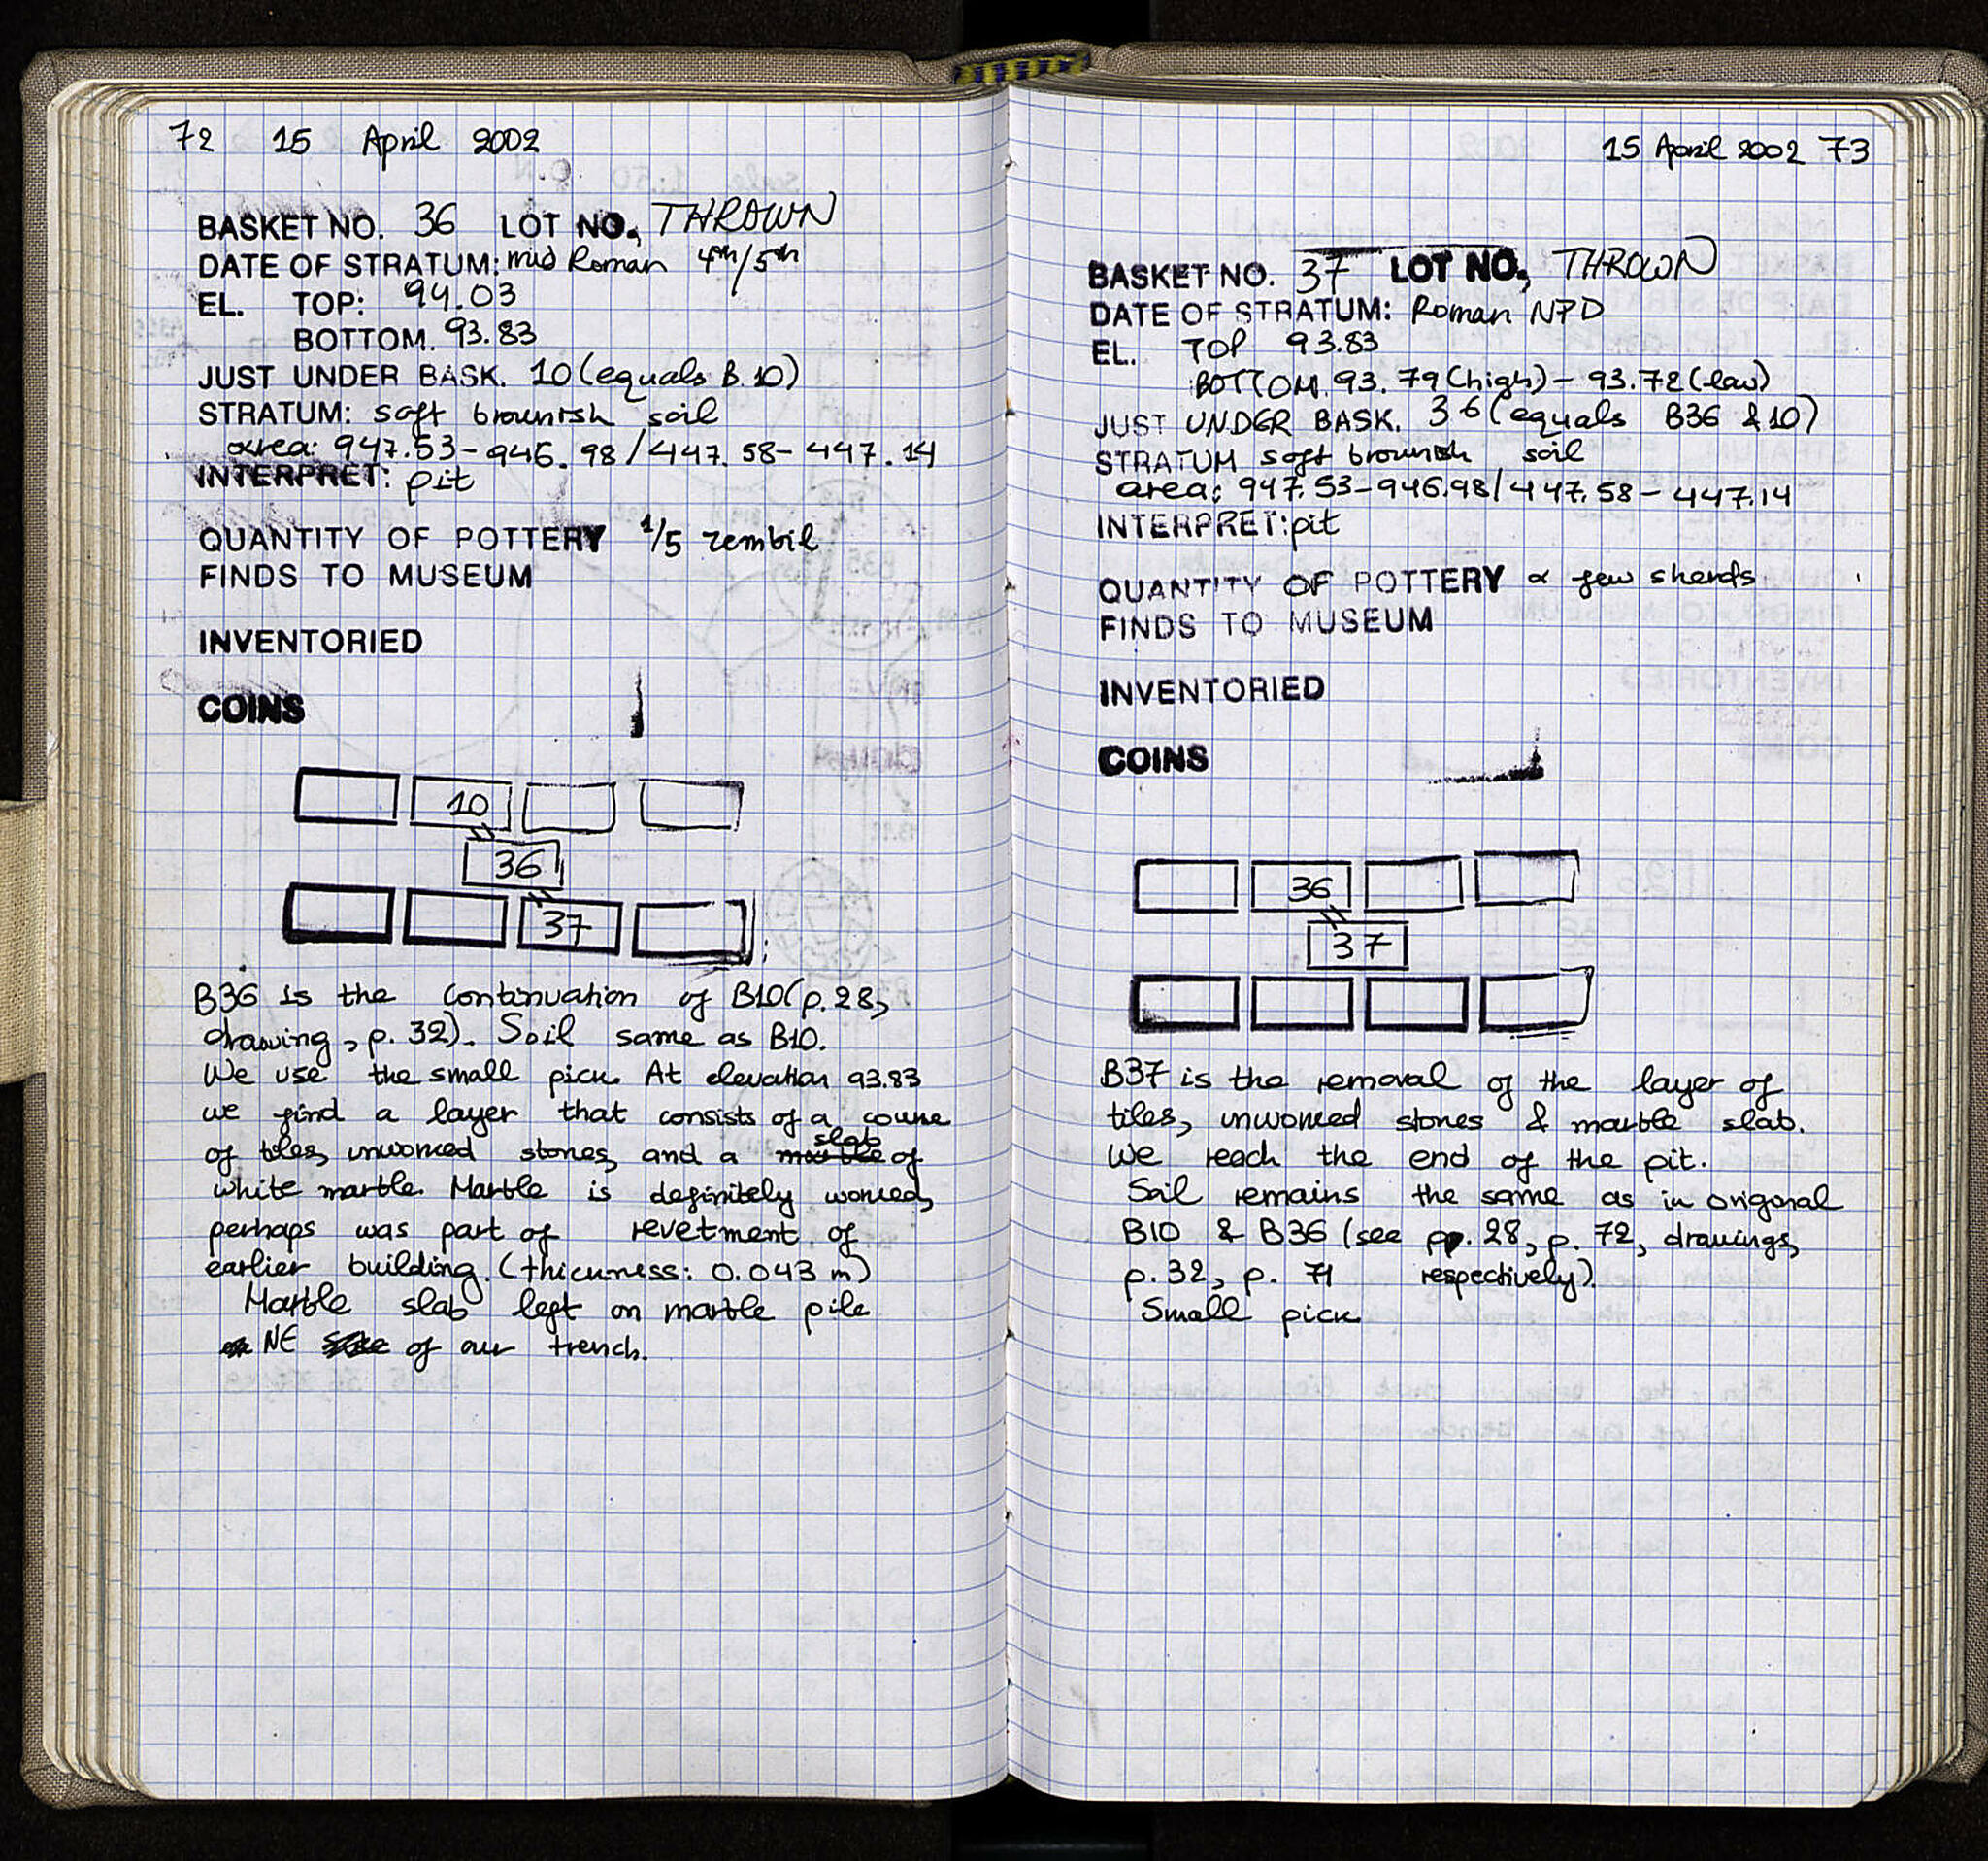 72 15 April 2002
BASKET NO. 36 LOT NO. THROWN
DATE OF STRATUM: mid Roman 4th/5th
EL. TOP: 94.03
BOTTOM. 93.83
JUST UNDER BASK. 10 (equals B.10)
STRATUM: soft brownish soil
area: 947.53-946.98/447.58-447.14
INTERPRET: pit
QUANTITY OF POTTERY 1/5 zembil
FINDS TO MUSEUM
INVENTORIED
COINS
10
36
37
B36 is the continuation of B10 (p.28,
drawing, p. 32). Soil same as B10.
We use the small pick. At elevation 93.83
we find a layer that consists of a course
of tiles, unworked stones, and a marble slab of
white marble. Marble is definitely worked,
perhaps was part of revetment of
earlier building. (thickness: 0.043 m)
Marble slab left on marble pile
NE of our trench.
15 April 2002 73
BASKET NO. 37 LOT NO. THROWN
DATE OF STRATUM: Roman NPD
EL. TOP 93.83
BOTTOM 93.79 (high) - 93.72 (low)
JUST UNDER BASK. 36 (equals B36 & 10)
STRATUM soft brownish soil
area: 947.53-946.98/447.58-447.14
INTERPRET: pit
QUANTITY OF POTTERY a few sherds
FINDS TO MUSEUM
INVENTORIED
COINS
36
37
B37 is the removal of the layer of
tiles, unworked stones & marble slab.
We reach the end of the pit.
Soil remains the same as in origonal
B10 & B36 (see pp. 28, p. 72, drawings,
p. 32, p. 71 respectively).
Small pick